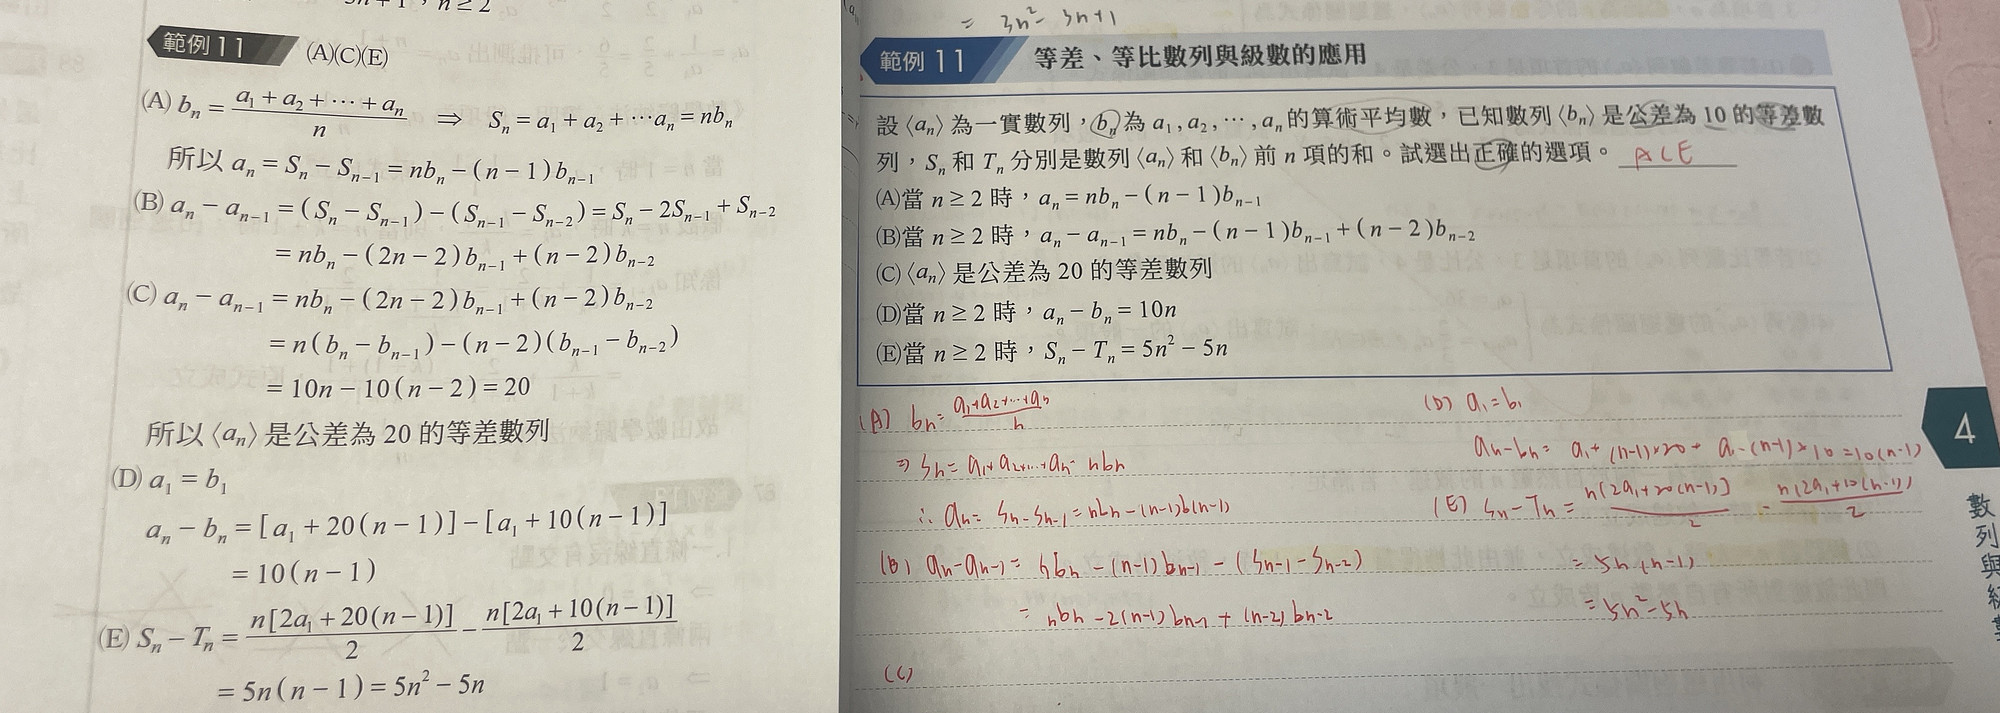 3n+1 , n ≥ 2
範例 11 (A)(C)(E)
(A) bₙ = (a₁ + a₂ + ⋯ + aₙ)/n ⇒ Sₙ = a₁ + a₂ + ⋯aₙ = nbₙ
所以 aₙ = Sₙ − Sₙ₋₁ = nbₙ − (n − 1)bₙ₋₁
(B) aₙ − aₙ₋₁ = (Sₙ − Sₙ₋₁) − (Sₙ₋₁ − Sₙ₋₂) = Sₙ − 2Sₙ₋₁ + Sₙ₋₂
= nbₙ − (2n − 2)bₙ₋₁ + (n − 2)bₙ₋₂
(C) aₙ − aₙ₋₁ = nbₙ − (2n − 2)bₙ₋₁ + (n − 2)bₙ₋₂
= n(bₙ − bₙ₋₁) − (n − 2)(bₙ₋₁ − bₙ₋₂)
= 10n − 10(n − 2) = 20
所以⟨aₙ⟩是公差為 20 的等差數列
(D) a₁ = b₁
aₙ − bₙ = [a₁ + 20(n − 1)] − [a₁ + 10(n − 1)]
= 10(n − 1)
(E) Sₙ − Tₙ = n[2a₁ + 20(n − 1)]/2 − n[2a₁ + 10(n − 1)]/2
= 5n(n − 1) = 5n² − 5n
= 3n² − 3n+1
範例 11 等差、等比數列與級數的應用
設⟨aₙ⟩為一實數列，bₙ為 a₁, a₂, ⋯, aₙ 的算術平均數，已知數列⟨bₙ⟩是公差為 10 的等差數
列，Sₙ 和 Tₙ 分別是數列⟨aₙ⟩和⟨bₙ⟩前 n 項的和。試選出正確的選項。 ACE
(A)當 n ≥ 2 時，aₙ = nbₙ − (n − 1)bₙ₋₁
(B)當 n ≥ 2 時，aₙ − aₙ₋₁ = nbₙ − (n − 1)bₙ₋₁ + (n − 2)bₙ₋₂
(C)⟨aₙ⟩是公差為 20 的等差數列
(D)當 n ≥ 2 時，aₙ − bₙ = 10n
(E)當 n ≥ 2 時，Sₙ − Tₙ = 5n² − 5n
(A) bn = (a₁+a₂+⋯+an)/n
⇒ Sn = a₁+a₂+⋯+an = nbn
∴ an = Sn − Sn-1 = nbn − (n-1)b(n-1)
(B) an − an-1 = nbn − (n-1)bn-1 − (Sn-1 − Sn-2)
= nbn − 2(n-1)bn-1 + (n-2)bn-2
(C)
(D) a₁ = b₁
an − bn = a₁ + (n-1)×20 + a₁ − (n-1)×10 = 10(n-1)
(E) Sn − Tn = n[2a₁+20(n-1)]/2 − n[2a₁+10(n-1)]/2
= 5n(n-1)
= 5n² − 5n
4
數列與級